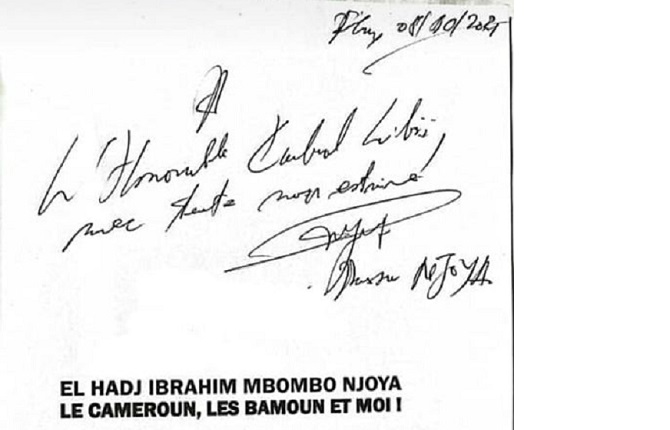 08/10/2025
A
L'Honorable Cabral Libii,
avec toute mon estime
NJOYA
EL HADJ IBRAHIM MBOMBO NJOYA
LE CAMEROUN, LES BAMOUN ET MOI !